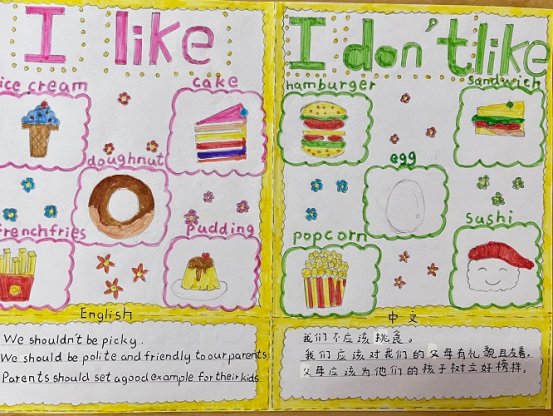 I like
I don't like
ice cream
cake
doughnut
frenchfries
pudding
hamburger
sandwich
egg
popcorn
sushi
English
We shouldn't be picky.
We should be polite and friendly to our parents
Parents should set a good example for their kids
中文
我们不应该挑食。
我们应该对我们的父母有礼貌且友善。
父母应该为他们的孩子树立好榜样。